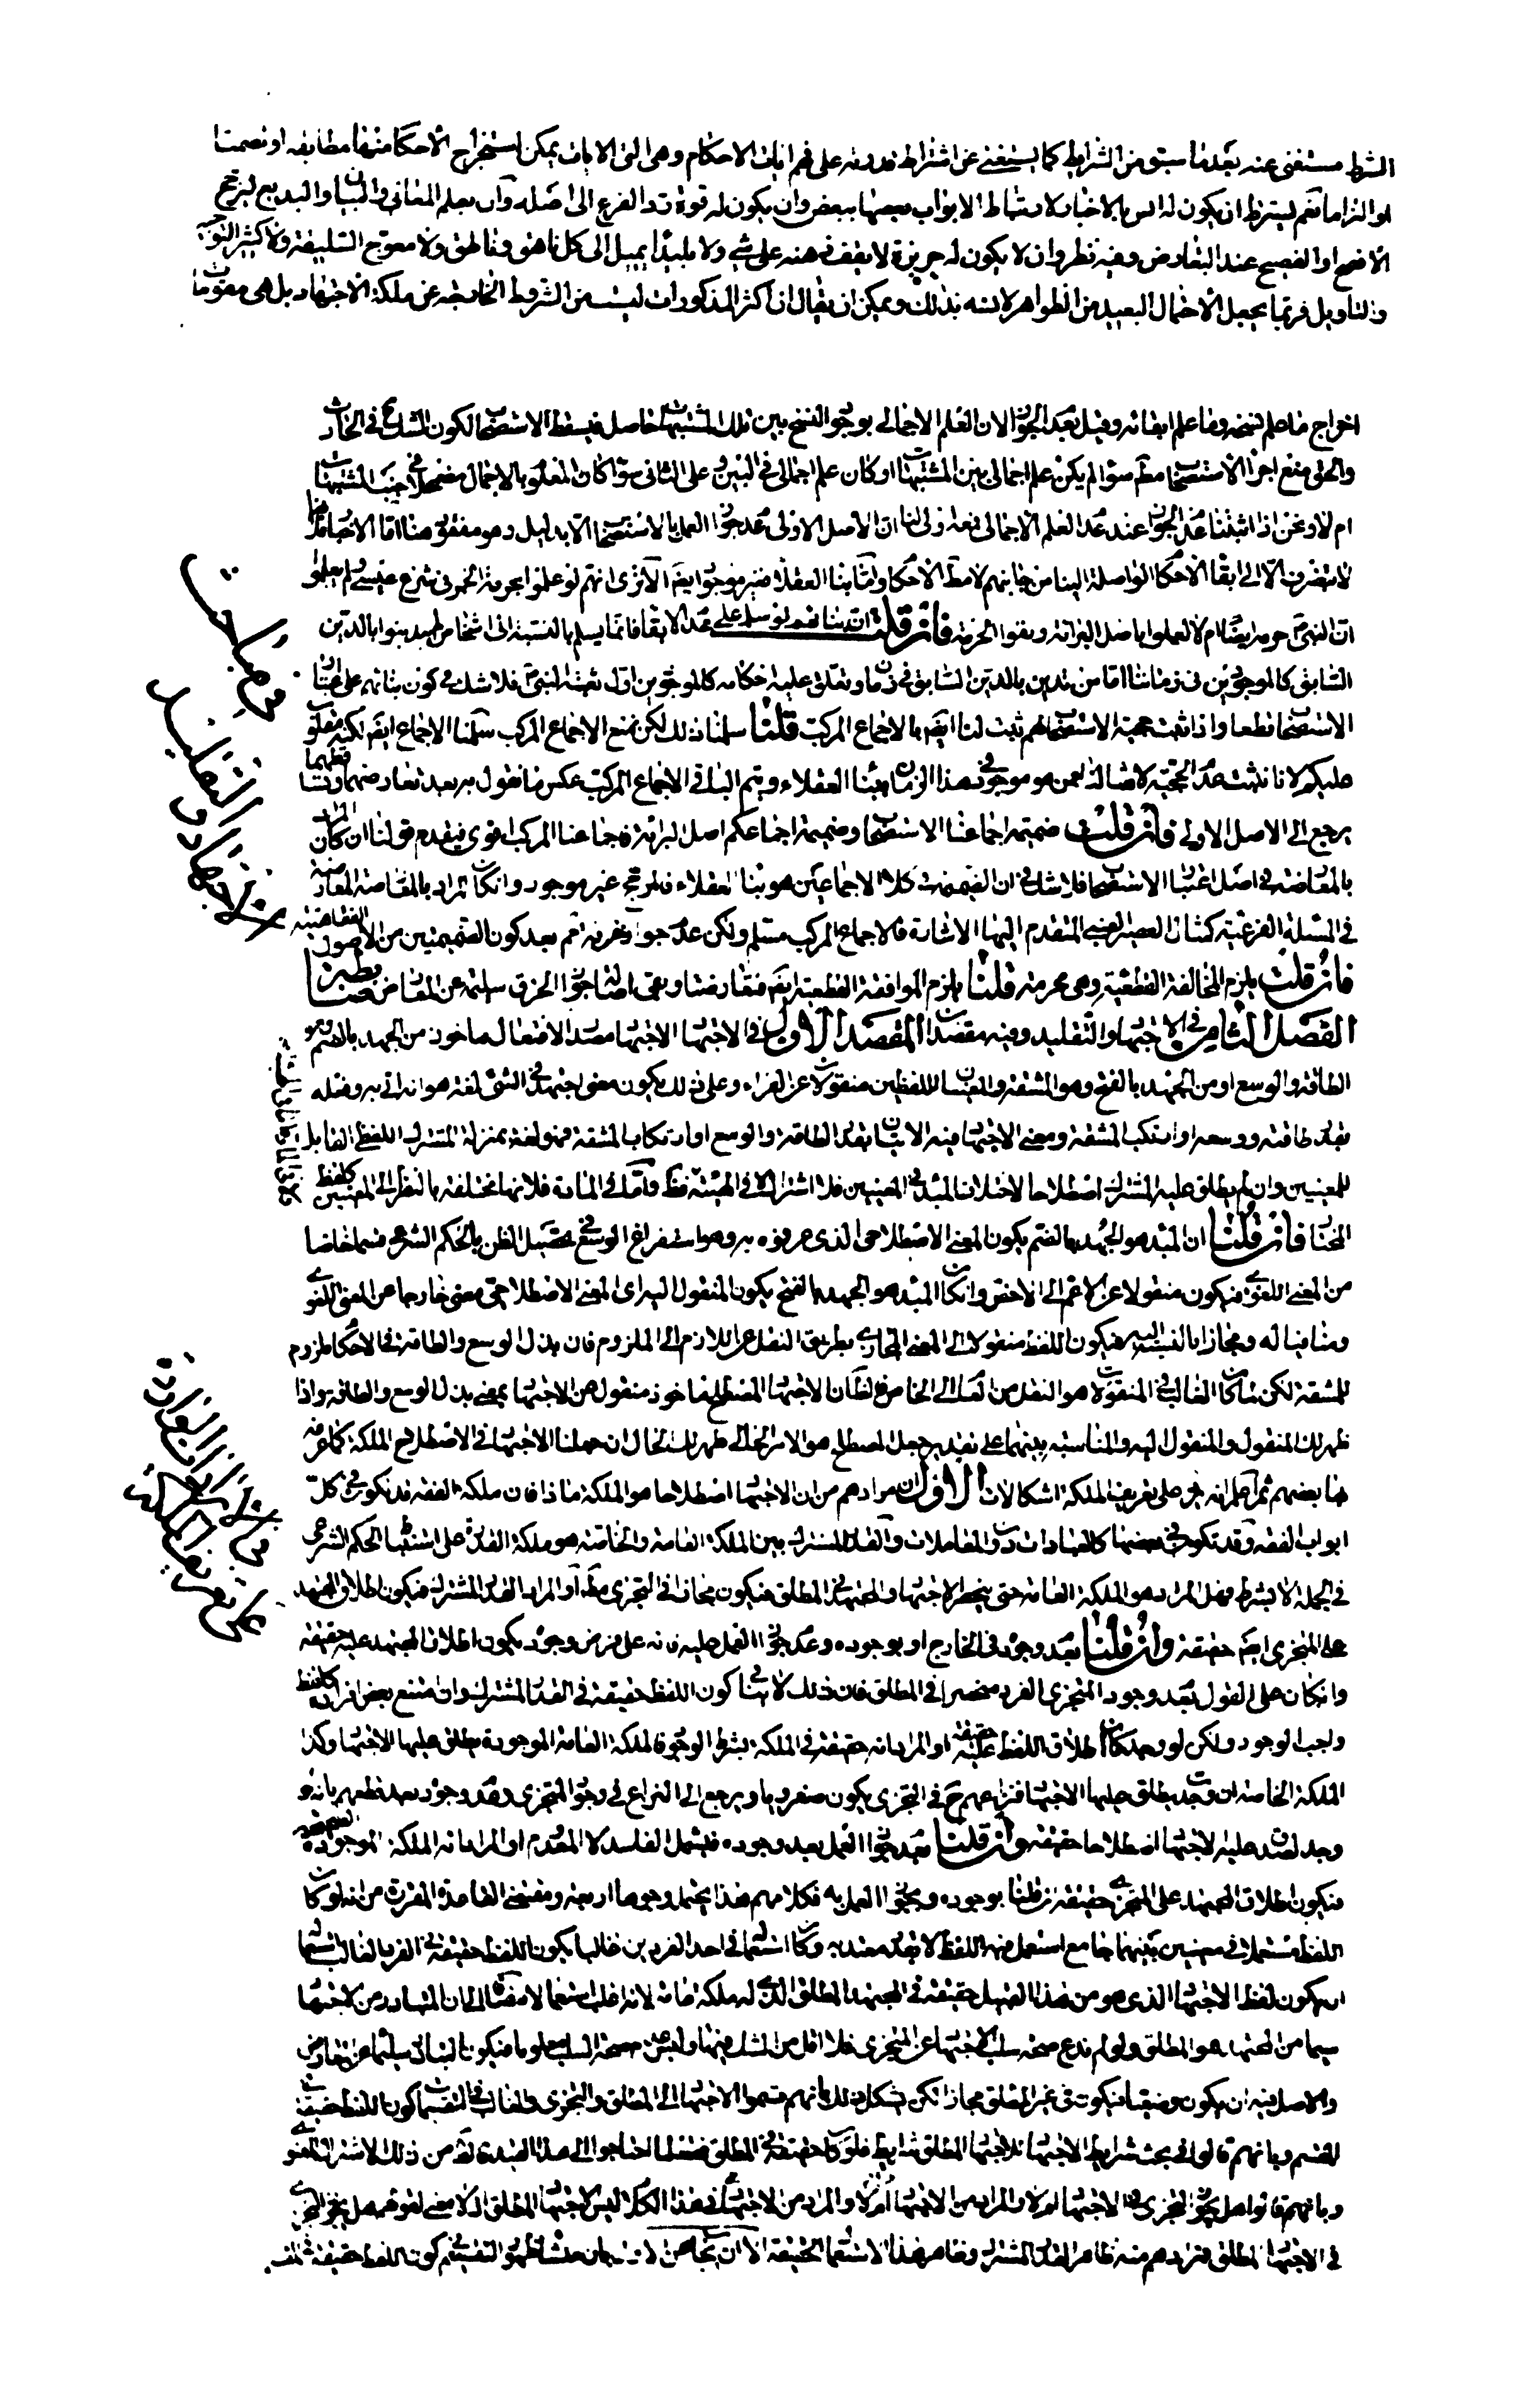 الشرط مستغنى عنه بعد ما سبق من الشرايط كما يستغنى عن اشتراط قدرته على فهم ايات الاحكام وهى التى الايات يمكن استخراج الاحكام منها مطابقه او تضمنا
او التزاما نعم يشترط ان يكون له انس بالاخبار لارتباط الابواب بعضها ببعض وان يكون له قوة رد الفرع الى اصله وان يعلم المعانى والبيان والبديع لترجيح
الافصح او الفصيح عند التعارض وفيه نظر وان لا يكون له جربزة لا يقف ذهنه على شىء ولا بليدا يميل الى كل ناهق وناطق ولا معوج السليقة ولا كثير التوجيه
والتاويل فربما يجعل الاحتمال البعيد من الظواهر لانسه بذلك ويمكن ان يقال ان اكثر المذكورات ليست من الشروط الخارجة عن ملكة الاجتهاد بل هى مقومات
اخراج ما علم نسخه وما علم ابقائه وقيل بعدم الجواز لان العلم الاجمالى بوجود النسخ بين تلك المشتبهات حاصل فيسقط الاستصحاب لكون الشك فى الحادث
والحق منع اجراء الاستصحاب مطم سواء لم يكن علم اجمالى بين المشتبهات او كان علم اجمالى فى البين وعلى الثانى سواء كان المعلوم بالاجمال مضمحلا فى جنب المشتبهات
ام لا ونحن اذا اثبتنا عدم الجواز عند عدم العلم الاجمالى فمعه اولى لنا ان الاصل الاولى عدم جواز العمل بالاستصحاب الا بدليل وهو مفقود هنا اما الاخبار فلانها
لا تنصرف الا الى ابقاء الاحكام الواصلة الينا من جانبهم لا مط الاحكام واما بناء العقلاء فغير موجود ايضا الا ترى انهم لو علموا بحرمة الخمر فى شرع عيسى ولم يعلموا
ان النبى ص حرمه ايضا ام لا لعملوا باصل البرائة ونفوا الحرمة فان قلت ان بنائهم لو سلم على عدم الابقاء فانما يسلم بالنسبة الى اشخاص لم يدينوا بالدين
السابق كالموجودين فى زماننا اما من تدين بالدين السابق فى زمان وتعلق عليه احكامه كالموجودين اول بعثة النبى ص فلا شك فى كون بنائهم على اتيان
الاستصحاب قطعا واذا ثبت حجية الاستصحاب لهم ثبت لنا ايضا بالاجماع المركب قلنا سلمنا ذلك لكن نمنع الاجماع المركب سلمنا الاجماع ايضا لكنه مقلوب
عليكم لانا نثبت عدم الحجية لاصالة لمن هو موجود فى هذا الزمان ببناء العقلاء ويتم الباقى بالاجماع المركب عكس ما نقول به وبعد تعارضهما وتساقطهما
يرجع الى الاصل الاولى فان قلت ضميمة اجماعنا الاستصحاب وضميمة اجماعكم اصل البرائة فاجماعنا المركب اقوى فيقدم قولنا ان كان المراد
بالمعارضة فى اصل اعتبار الاستصحاب فلا شك فى ان الضميمة فى كلا الاجماعين هو بناء العقلاء فالمرجح غير موجود وان كان المراد بالمعارضة المعارضة
فى المسئلة الفرعية كمثال العصير العنبى المتقدم اليها الاشارة فالاجماع المركب مسلم ولكن عدم جواز خرقه ثم بعد كون الضميمتين من الاصول الفقاهتية
فان قلت يلزم المخالفة القطعية وهى محرمة قلنا يلزم الموافقة القطعية ايضا فتعارضتا وبقى اصالة جواز الخرق سليمة عن المعارض
الفصل الثامن فى الاجتهاد والتقليد وفيه مقصدان المقصد الاول فى الاجتهاد الاجتهاد مصدر الافتعال ماخوذ من الجهد بالضم وهو
الطاقة والوسع او من الجهد بالفتح وهو المشقة والمعنيان للفظين منقولان عن الفراء وعلى ذلك يكون معنى اجتهد فى الشىء لغة هو انه اتى به وفعله
بقدر طاقته ووسعه او ارتكب المشقة ومعنى الاجتهاد فيه الاتيان بقدر الطاقة والوسع او ارتكاب المشقة فهو لغة بمنزلة المشترك اللفظى القابل
للمعنيين وان لم يطلق عليه المشترك اصطلاحا لاختلاف المبدء فى المعنيين فلا اشتراك الا فى الهيئة فقط واما فى المادة فلا لانها مختلفة بالنظر الى المعنيين كلفظ
المختار فان قلنا ان المبدء هو الجهد بالضم يكون المعنى الاصطلاحى الذى عرفوه به وهو استفراغ الوسع فى تحصيل الظن بالحكم الشرعى قسما خاصا
من المعنى اللغوى فيكون منقولا عن الاعم الى الاخص وان كان المبدء هو الجهد بالفتح يكون المنقول اليه اى المعنى الاصطلاحى معنى خارجا عن المعنى اللغوى
ومباينا له ومجازا بالنسبة اليه فيكون اللفظ منقولا الى المعنى المجازى بطريق النقل عن اللازم الى الملزوم فان بذل الوسع والطاقة فى الاحكام ملزوم
للمشقة لكن لما كان الغالب فى المنقولات هو النقل من العام الى الخاص فالظ ان الاجتهاد المصطلح ماخوذ منقول من الاجتهاد بمعنى بذل الوسع والطاقة واذا
ظهر لك المنقول والمنقول اليه والمناسبة بينهما على تقدير جعل المصطلح هو الامر الحالى ظهر لك الحال ان حملنا الاجتهاد فى الاصطلاح الملكة كما عرفه
بها بعضهم ثم اعلم انه يرد على تعريف الملكة اشكالات الاول ان مرادهم من ان الاجتهاد اصطلاحا هو الملكة ماذا فان ملكة الفقه قد تكون فى كل
ابواب الفقه وقد تكون فى بعضها كالعبادات دون المعاملات والقدر المشترك بين الملكة العامة والخاصة هو ملكة القدرة على استنباط الحكم الشرعى
فى الجملة لا بشرط فهل المراد هو الملكة العامة حتى ينحصر الاجتهاد والمجتهد فى المطلق فيكون مجازا فى المتجزى مط او المراد القدر المشترك فيكون اطلاق المجتهد
على المتجزى ايضا حقيقة وان قلنا بعدم وجوده فى الخارج او بوجوده وعدم جواز العمل عليه فانه على فرض وجوده يكون اطلاق المجتهد عليه حقيقة
وان كان على القول بعدم وجود المتجزى الفرد منحصرا فى المطلق فان ذلك لا ينافى كون اللفظ حقيقة فى القدر المشترك وان امتنع بعض افراده كلفظ
واجب الوجود ولكن لو وجد كان اطلاق اللفظ عليه حقيقة او المراد انه حقيقة فى الملكة بشرط الوجود فالملكة العامة الموجودة يطلق عليها الاجتهاد وكذا
الملكة الخاصة ان وجدت يطلق عليها الاجتهاد فنزاعهم ح فى التجزى يكون صغرويا ويرجع الى النزاع فى وجود المتجزى وعدم وجوده بعد قطعهم بانه لو
وجد لصدق عليه الاجتهاد اصطلاحا حقيقة وان قلنا بعدم جواز العمل بعد وجوده فيشمل الفاسد كالمعدوم او المراد انه الملكة الموجودة الصحيحة
فيكون اطلاق المجتهد على المتجزى حقيقة ان قلنا بوجوده وبجواز العمل به فكلامهم هذا يحتمل وجوها اربعة ومقتضى القاعدة المقررة من انه لو كان
اللفظ مستعملا فى معنيين بينهما جامع استعمل فيه اللفظ لا بقدر معتد به وكان استعماله فى احد الفردين غالبا يكون اللفظ حقيقة فى الفرد الغالب استعماله
ان يكون لفظ الاجتهاد الذى هو من هذا القبيل حقيقة فى المجتهد المطلق الذى له ملكة عامة لانه اغلب استعمالا مضافا الى ان المتبادر من الاجتهاد
سيما من المجتهد هو المطلق ولو لم ندع صحة سلب الاجتهاد عن المتجزى فلا اقل من الشك فيها وليس عدم صحة السلب معلوما فيكون التبادر سليما عن المعارض
والاصل فيه ان يكون وضعيا فيكون فى غير المطلق مجازا لكن يشكل ذلك بانهم قسموا الاجتهاد الى المطلق والمتجزى والغالب فى التقسيم كون اللفظ حقيقة فى
المقسم وبانهم قالوا فى بحث شرايط الاجتهاد للاجتهاد المطلق شرايط فلو كان حقيقة فى المطلق فقط لما احتاجوا الى هذا القيد فالظ من ذلك الاشتراك المعنوى
وبانهم قالوا هل يجوز التجزى فى الاجتهاد ام لا والمراد من الاجتهاد فى هذا الكلام ليس الاجتهاد المطلق اذ لا معنى لقولهم هل يجوز التجزى
فى الاجتهاد المطلق فمرادهم منه ظاهرا القدر المشترك وظاهر هذا الاستعمال الحقيقة الا ان يجاب عن الاول بان منشأ ظهور التقسيم كون اللفظ حقيقة فى المقسم
فى مباحث الاجتهاد والتقليد